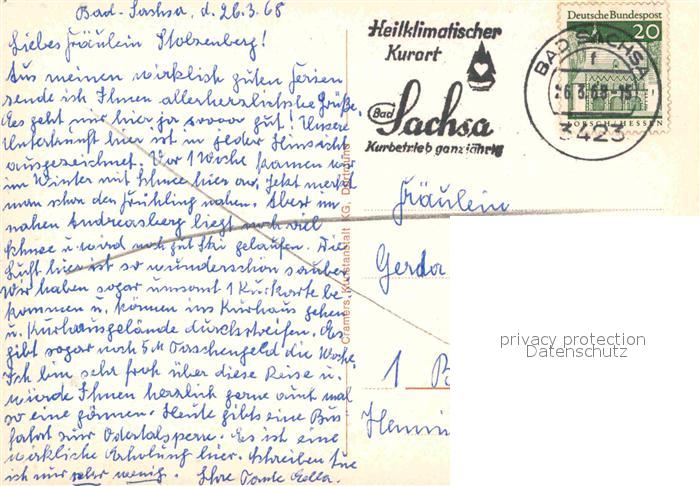 Bad-Sachsa, d. 26.3.68
Liebes Fräulein Stolzenberg!
Aus meinen wirklich guten Ferien
sende ich Ihnen allerherzlichste Grüße.
Es geht mir hier ja soooo gut! Unsere
Unterkunft hier ist in jeder Hinsicht
ausgezeichnet. Vor 1 Woche kamen wir
im Winter mit Schnee hier an, jetzt merkt
man schon den Frühling nahen. Aber im
nahen Andreasberg liegt noch viel
Schnee u. wird noch gut Ski gelaufen. Die
Luft hier ist so wunderschön sauber.
Wir haben sogar umsonst 1 Kurkarte be-
kommen u. können ins Kurhaus gehen
u. Kurhausgelände durchstreifen. Es
gibt sogar noch 5 M Taschengeld die Woche.
Ich bin sehr froh über diese Reise u.
würde Ihnen herzlich gerne auch mal
so eine gönnen. Heute gibts eine Bus
fahrt zur Odertalsperre. Es ist eine
wirkliche Erholung hier. Schreiben tue
ich nur sehr wenig. Ihre Tante Ella.
Cramers Kunstanstalt KG, Dortmund
Heilklimatischer
Kurort
Bad Sachsa
Kurbetrieb ganzjährig
BAD SACHSA
f
26.3.68-15
3423
Deutsche Bundespost
20
LORSCH/HESSEN
Fräulein
Gerda
1 B
Hennin
privacy protection
Datenschutz